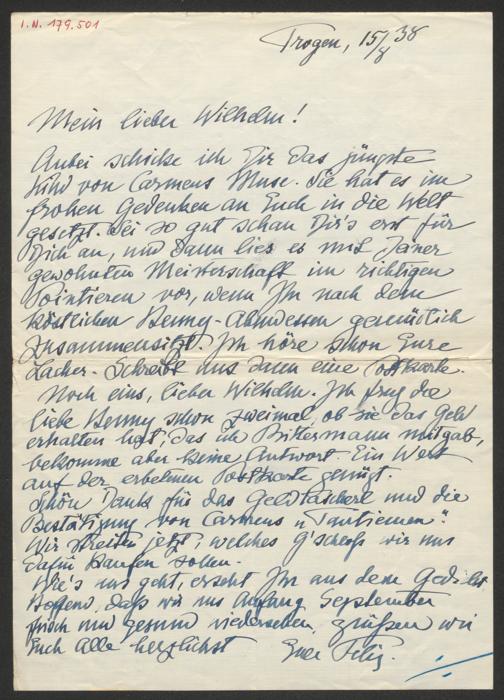 I.N. 179.501
Trogen, 15/8 38
Mein lieber Wilhelm!
Anbei schicke ich Dir das jüngste
Kind von Carmens Muse. Sie hat es im
frohen Gedenken an Euch in die Welt
gesetzt. Sei so gut schau Dir's erst für
Dich an, und dann lies es mit Deiner
gewohnten Meisterschaft im richtigen
Pointieren vor, wenn Ihr nach dem
köstlichen Henny-Abendessen gemütlich
zusammensitzt. Ich höre schon Eure
Lacher. Schreibt uns dann eine Postkarte.
Noch eins, lieber Wilhelm. Ich frug die
liebe Henny schon zweimal, ob sie das Geld
erhalten hat, das ich Bittermann mitgab,
bekomme aber keine Antwort. Ein Wort
auf der erbetenen Postkarte genügt.
Schön Dank für das Geldtascherl und die
Bestätigung von Carmens "Tantiemen".
Wir streiten jetzt, welches G'schloss wir uns
dafür kaufen sollen.
Wie's uns geht, erseht Ihr aus dem Gedicht.
Hoffend, daß wir uns Anfang September
froh und gesund wiedersehen, grüßen wir
Euch alle herzlichst